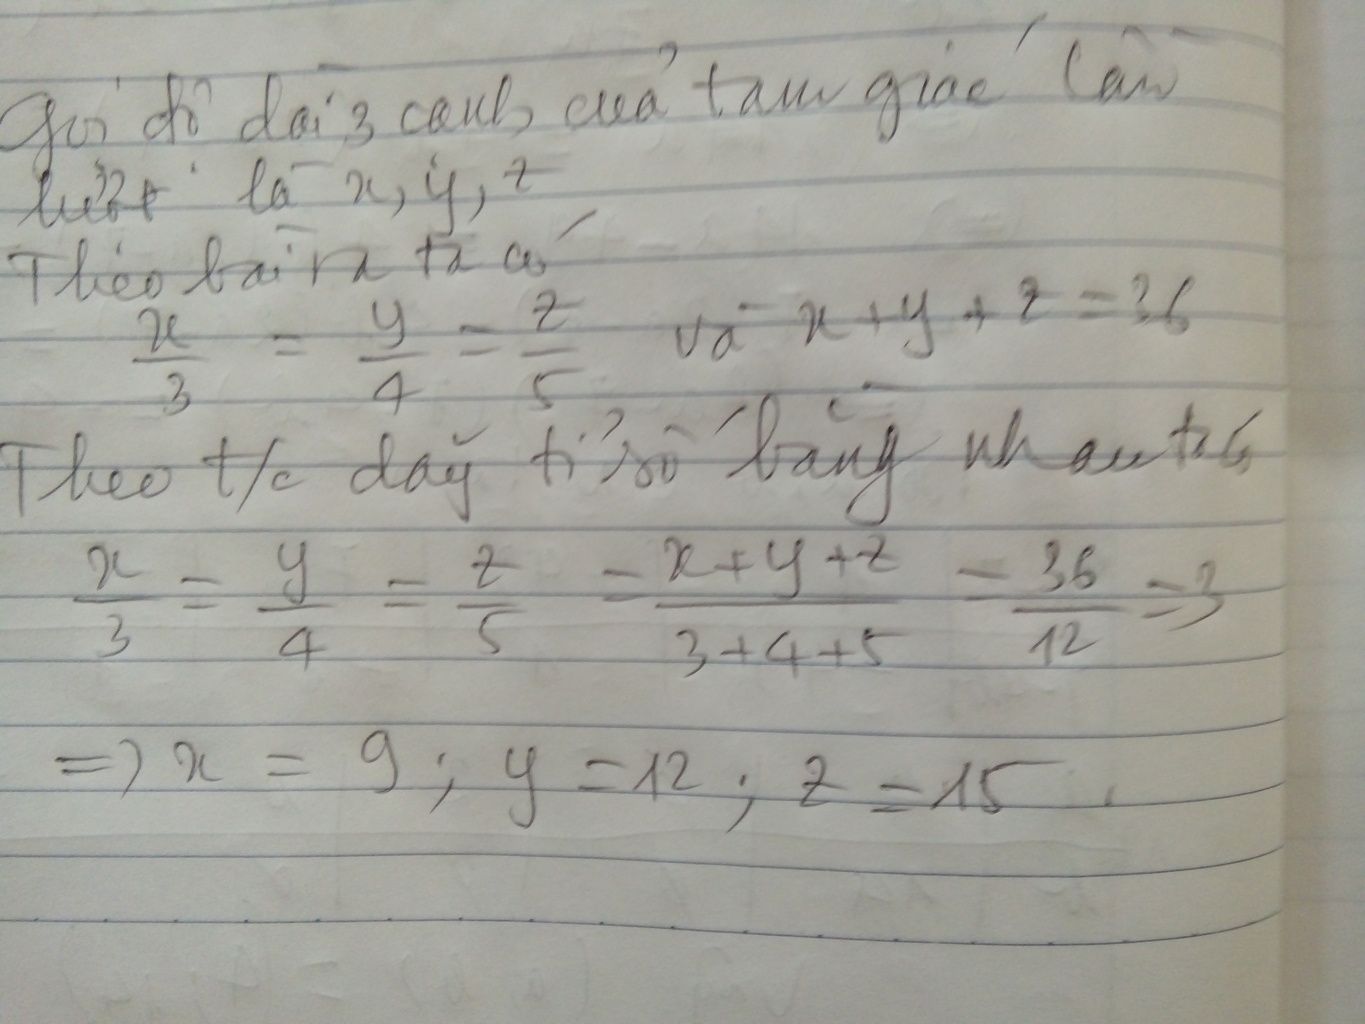 Gọi độ dài 3 cạnh của tam giác lần
lượt là x, y, z
Theo bài ra ta có
x/3 = y/4 = z/5 và x + y + z = 36
Theo t/c dãy tỉ số bằng nhau ta có
x/3 = y/4 = z/5 = x+y+z/3+4+5 = 36/12 = 3
=> x = 9 ; y = 12 ; z = 15.